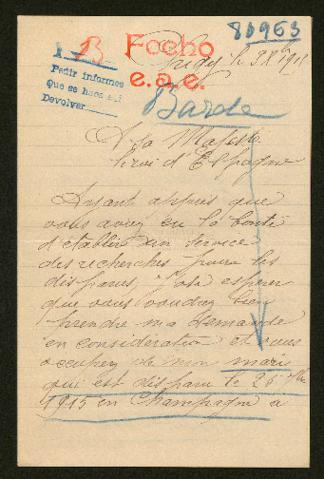 80963
1 - B.
Focho
e.a.e.
Pedir informes
Que se haga
Devolver
Barde
A sa Majesté
le roi d'Espagne
Ayant appris que
vous avez eu la bonté
d'établir un service
des recherches pour les
disparus, j'ose espérer
que vous voudrez bien
prendre ma demande
en considération et vous
occuper de mon mari
qui est disparu le 26 7bre
1915 en Champagne a